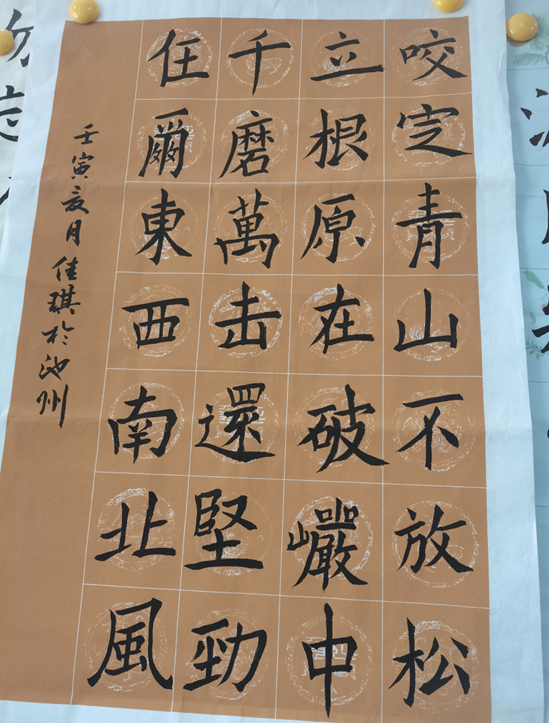 咬定青山不放松
立根原在破巖中
千磨萬击還堅勁
任爾東西南北風
壬寅亥月佳琪於池州